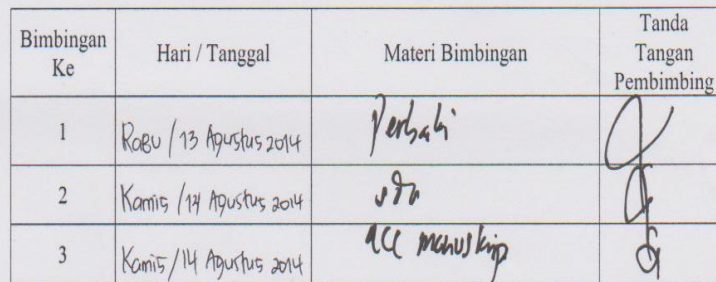 Bimbingan Ke Hari / Tanggal Materi Bimbingan Tanda Tangan Pembimbing
1 Rabu / 13 Agustus 2014 Perbaiki
2 Kamis / 14 Agustus 2014
3 Kamis / 14 Agustus 2014 acc manuskrip